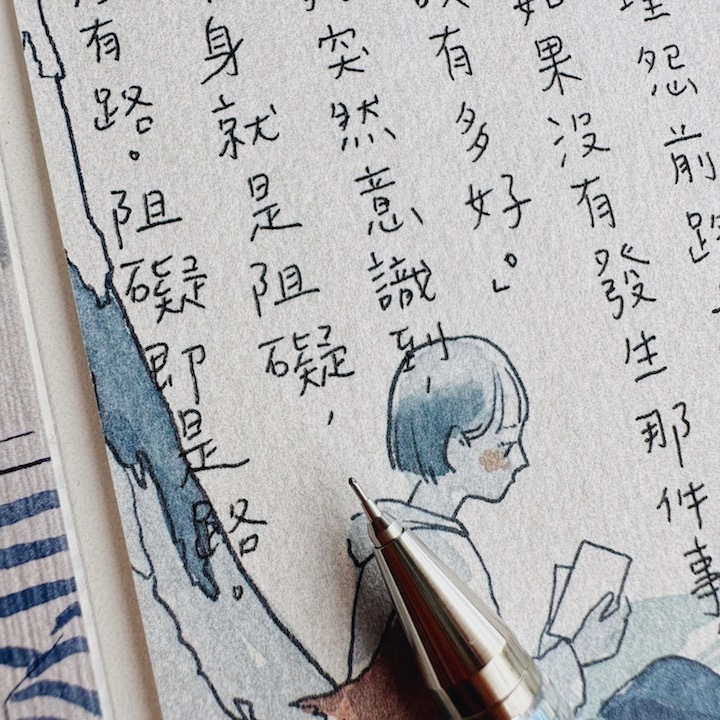 怨前路
如果沒有發生那件事
有多好。」
突然意識到，
身就是阻礙，
有路。阻礙即是路。